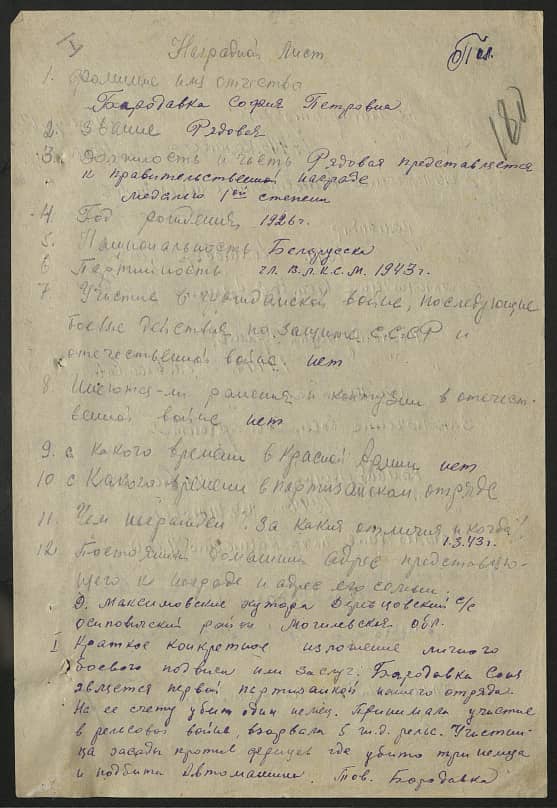 Наградной Лист
1. Фамилие имя отчество
Бародавка София Петровна
180
2. Звание Рядовая
3. Должность и часть Рядовая представляется
к правительственной награде
Медалью 1ой степени
4. Год рождения 1926 г.
5. Национальность Белорусска
6 Партийность чл. В.Л.К.С.М. 1943 г.
7 Участие в гражданской войне, последующие
боевые действия по защите СССР и
отечественной войне. нет
8. Имеются-ли ранения и контузии в отечест-
венной войне нет
9. с какого времени в Красной Армии нет
10 с Какого времени в партизанском отряде
11. Чем награжден. За какия отличия и когда?
1.3.43 г.
12. Постоянный домашний адрес представляю-
щего к награде и адрес его семьи:
Д. Максимовские хутора с/с
Осиповичский район Могилевская обл.
I Краткое конкретное изложение личного
боевого подвига или заслуг. Бародавка Соня
является первой партизанкой нашего отряда.
На ее счету убит один немец. Принимала участие
в рельсовой войне, взорвала 5 ж.д. рельс. Участни-
ца засады против фрицев где убито три немца
и подбита Автомашина. Тов. Бородавка